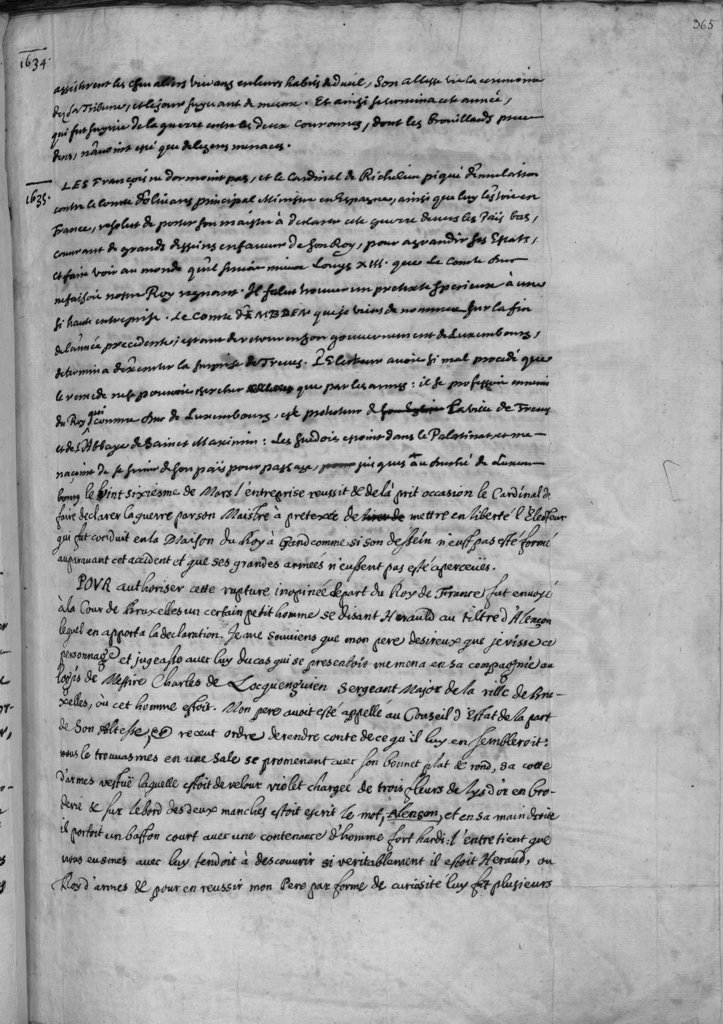 365
1634.
assisterent les chevaliers vivans en leurs habits de dueil, Son Altesse vit la ceremonie
de sa Tribune, et le jour suyvant de mesme. Et ainsi se termina cete année,
qui fut suyvie de la guerre entre les deux Couronnes, dont les brouillards prece
dens, n'avoint esté que de legeres menaces.
1635.
LES François ne dormoint pas, et le Cardinal de Richelieu piqué d'emulation
contre le Comte d'Olivares principal Ministre en Espagne, ainsi que luy l'estoit en
France, resolut de porter son maistre à declarer cete guerre devers les Païs bas,
couvrant de grands desseins en faveur de son Roy, pour agrandir ses Estats,
et faire voir au monde qu'il servoit mieux Louys XIII. que le Comte Duc
ne faisoit nostre Roy regnant. Il falut trouver un pretexte specieux à une
si haute entreprise. Le Comte d'EMBDEN que je viens de nommer sur la fin
de l'année precedente, estant de retour en son gouvernement de Luxembourg,
determina d'executer la surprise de Treves. L'Electeur avoit si mal procedé que
le remede ne se pouvoit chercher que par les armes: il se professoit ennemi
du Roy, qui comme Duc de Luxembourg, est protecteur de la ville de Treves
et de l'Abbaye de Sainct Maximin: Les Suedois estoint dans le Palatinat et me-
naçoint de se servir de son païs pour passage, jusques au duché de Luxem-
bourg le vint sixiesme de Mars l'entreprise reussit & de là prit occasion le Cardinal de
faire declarer la guerre par son Maistre à pretexte de mettre en liberté l'Electeur
qui fut conduit en la Maison du Roy à Gand comme si son dessein n'eust pas esté formé
auparavant cet accident et que ses grandes armées n'eussent pas esté aperceües.
POVR authoriser cette rupture inopinée de part du Roy de France, fut envoyé
à la Cour de Bruxelles un certain petit homme se disant Herauld au tiltre d'Alençon
lequel en apporta la declaration. Je me souviens que mon pere desireux que je visse ce
personnage et jugeasse avec luy du cas qui se presentoit me mena en sa compagnie au
logis de Messire Charles de Locquenguien Sergeant Major de la ville de Bru-
xelles, où cet homme estoit. Mon pere avoit esté appellé au Conseil d'Estat de la part
de Son Altesse, et receut ordre de rendre conte de ce qu'il luy en sembleroit:
nous le trouvasmes en une sale se promenant avec son bonnet plat & rond, sa cotte
d'armes vestuë laquelle estoit de velour violet chargée de trois fleurs de lys d'or en bro-
derie & sur le bord des deux manches estoit escrit le mot, Alençon, et en sa main droite
il portoit un baston court avec une contenance d'homme fort hardi: l'entretient que
nous eusmes avec luy tendoit à descouvrir si veritablement il estoit Heraud, ou
Roy d'armes & pour en reussir mon Pere par forme de curiosité luy fit plusieurs